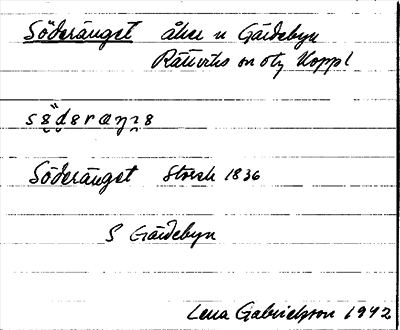 Söderänget åker n Gärdebyn
Rättviks sn otg Koppl
Söderänget Storsk 1836
S Gärdebyn
Lena Gabrielsson 1942